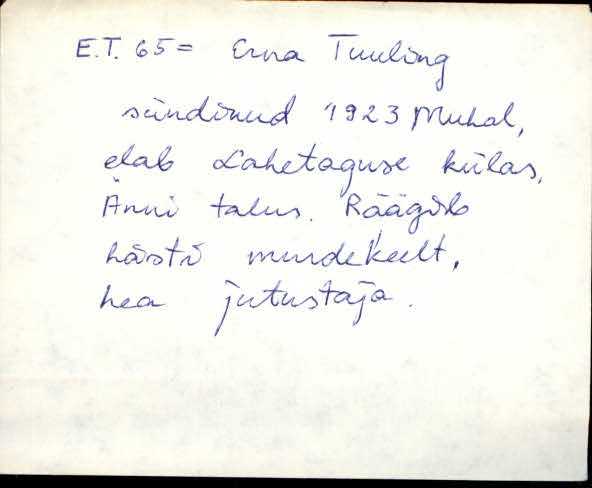 E.T. 65 = Erna Tuuling
sündinud 1923 Muhal,
elab Lahetaguse külas,
Änni talus. Räägib
hästi murdekeelt,
hea jutustaja.